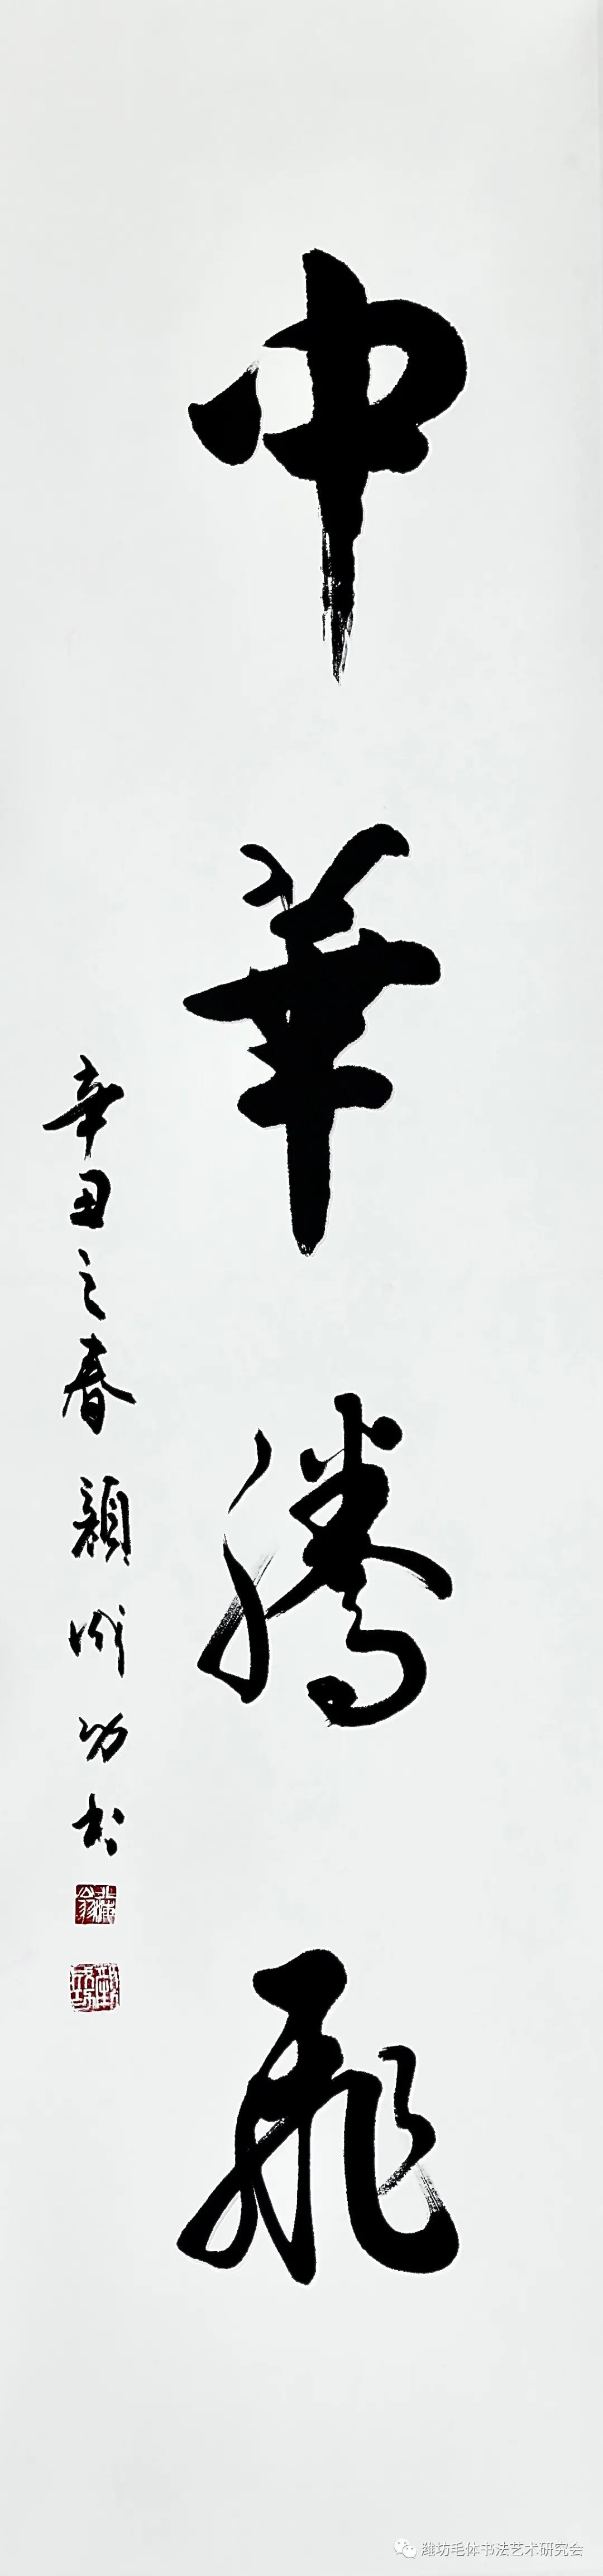 中華騰飛
辛丑之春 顏 功书
潍坊毛体书法艺术研究会